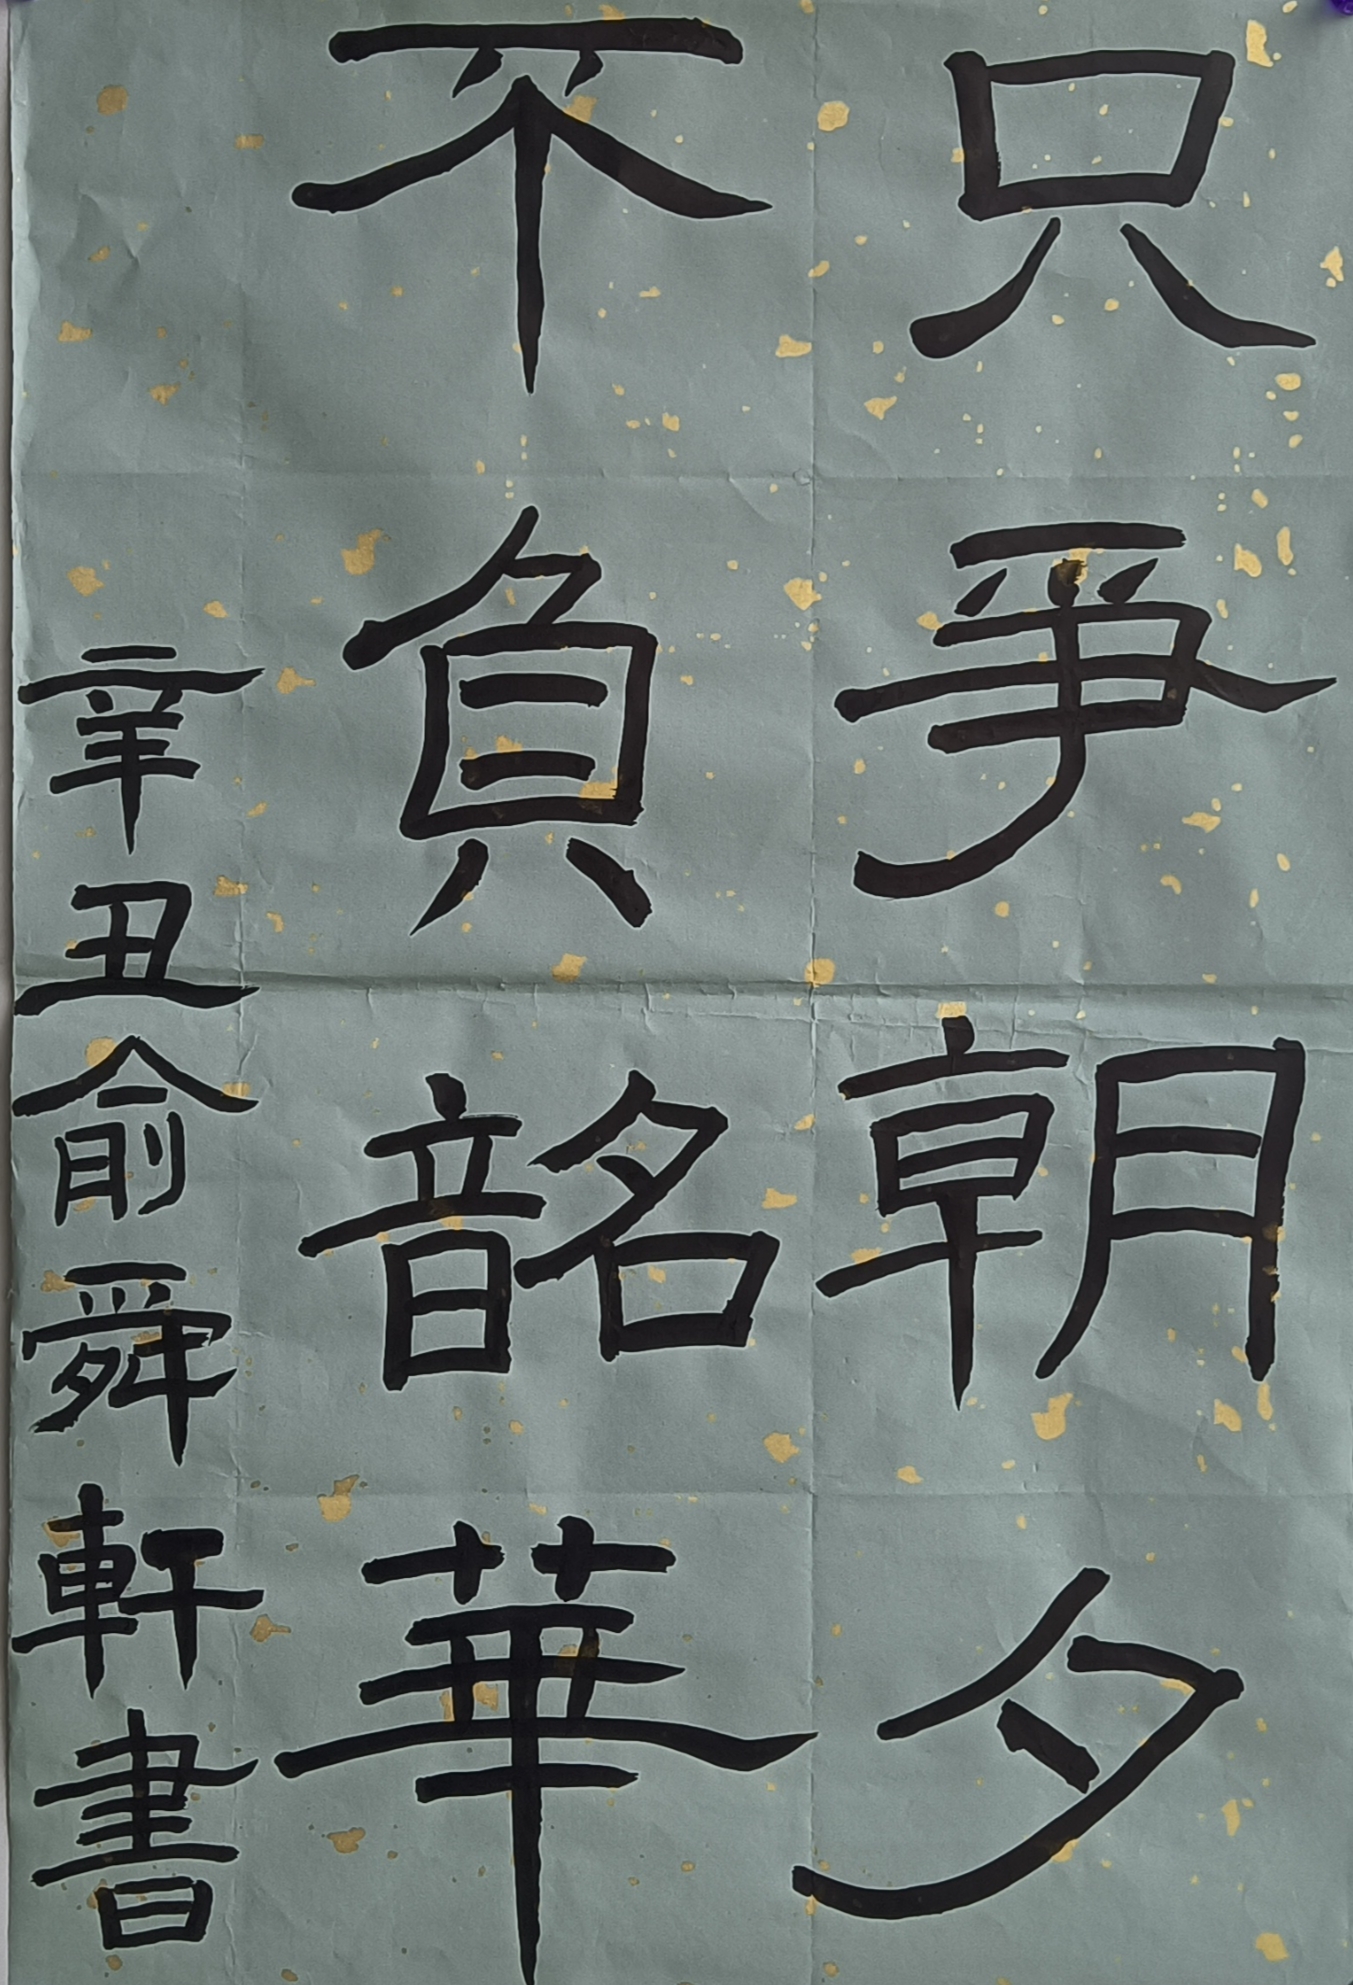 只爭朝夕
不負韶華
辛丑俞舜軒書